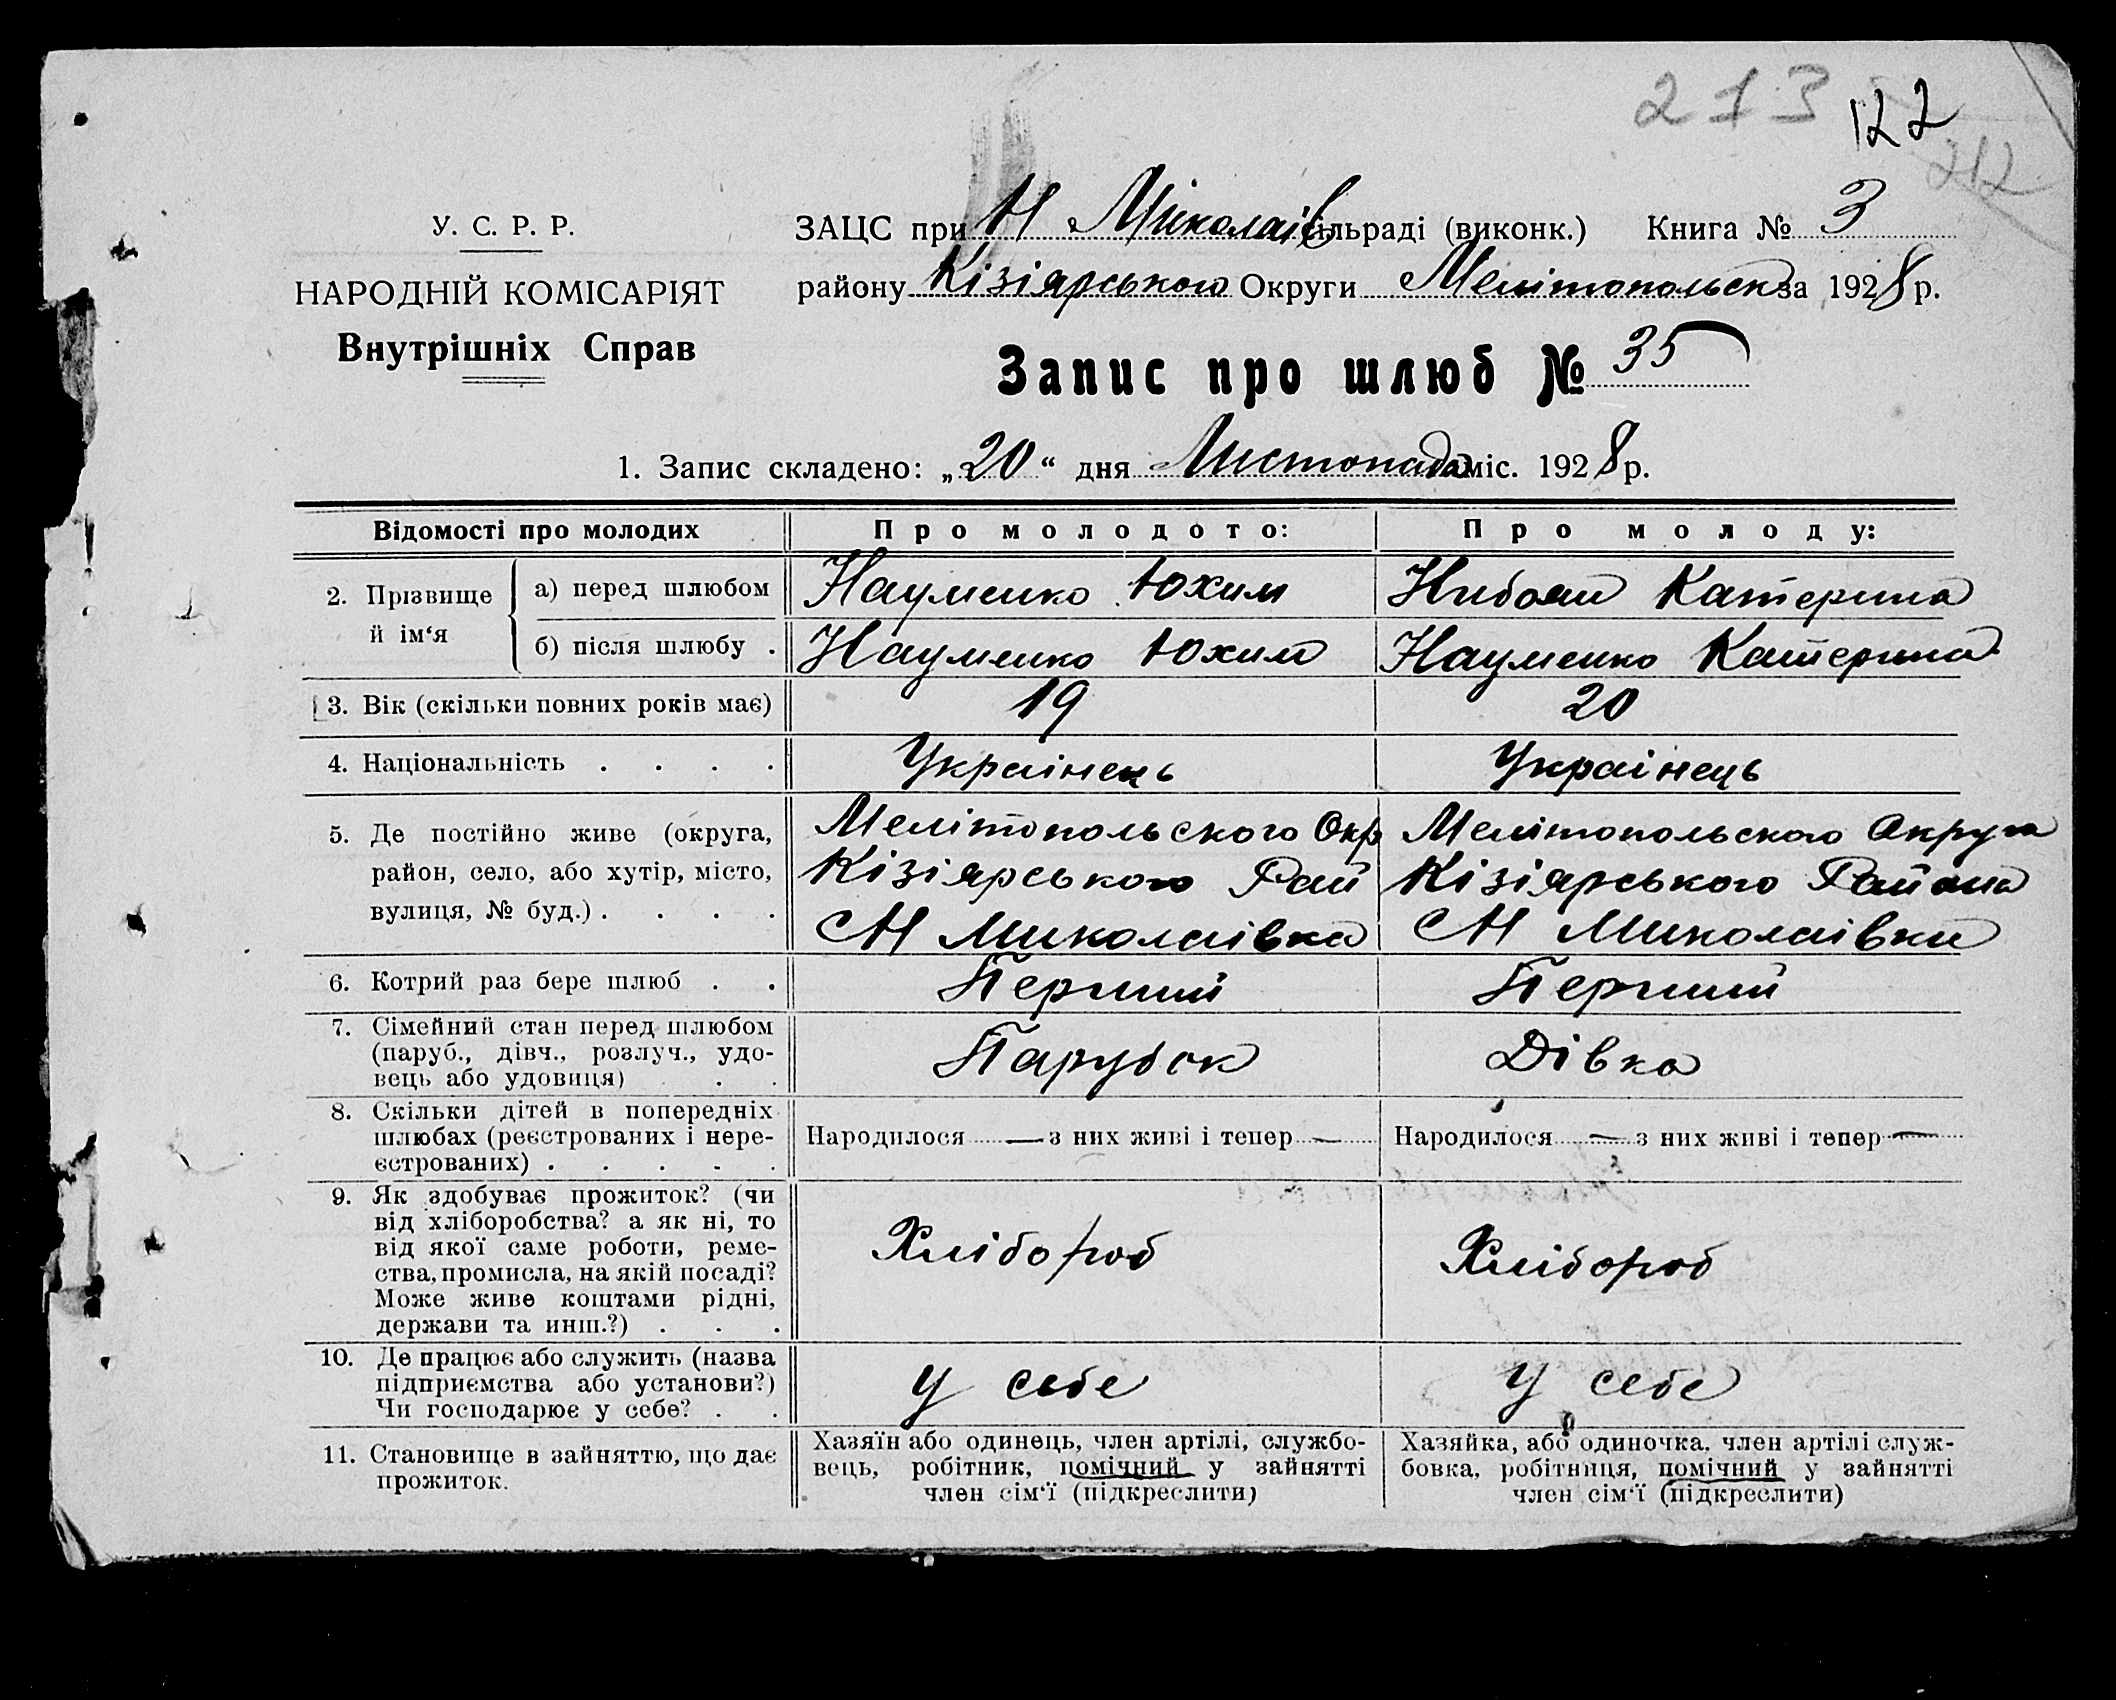 213 122
212
У. С. Р. Р.
НАРОДНІЙ КОМІСАРІЯТ
Внутрішніх Справ
ЗАЦС при Н Миколаів сільраді (виконк.) Книга № 3
району Кізіярського Округи Мелітопольск за 1928 р.
Запис про шлюб № 35
1. Запис складено: „20“ дня Листопада міс. 1928 р.
Відомості про молодих
Про молодого:
Про молоду:
2. Прізвище й ім‘я
а) перед шлюбом
Науменко Юхим
Катерина
б) після шлюбу .
Науменко Юхим
Науменко Катерина
3. Вік (скільки повних років має)
19
20
4. Національність . . . .
Украінець
Украінець
5. Де постійно живе (округа,
район, село, або хутір, місто,
вулиця, № буд.) . . . .
Мелітопольского Окр
Кізіярського Рай
С Н Миколаівка
Мелітопольского Округа
Кізіярського Района
С Н Миколаівки
6. Котрий раз бере шлюб . .
Перший
Перший
7. Сімейний стан перед шлюбом
(паруб., дівч., розлуч., удо-
вець або удовиця) . .
Парубок
Дівка
8. Скільки дітей в попередніх
шлюбах (реєстрованих і нере-
єстрованих) . . . . .
Народилося — з них живі і тепер —
Народилося — з них живі і тепер —
9. Як здобуває прожиток? (чи
від хліборобства? а як ні, то
від якої саме роботи, реме-
ства, промисла, на якій посаді?
Може живе коштами рідні,
держави та инш.?) . . .
Хлібороб
Хлібороб
10. Де працює або служить (назва
підприємства або установи?)
Чи господарює у себе? . .
У себе
У себе
11. Становище в зайняттю, що дає
прожиток.
Хазяїн або одинець, член артілі, службо-
вець, робітник, помічний у зайнятті
член сім‘ї (підкреслити)
Хазяйка, або одиночка, член артілі служ-
бовка, робітниця, помічний у зайнятті
член сім‘ї (підкреслити)